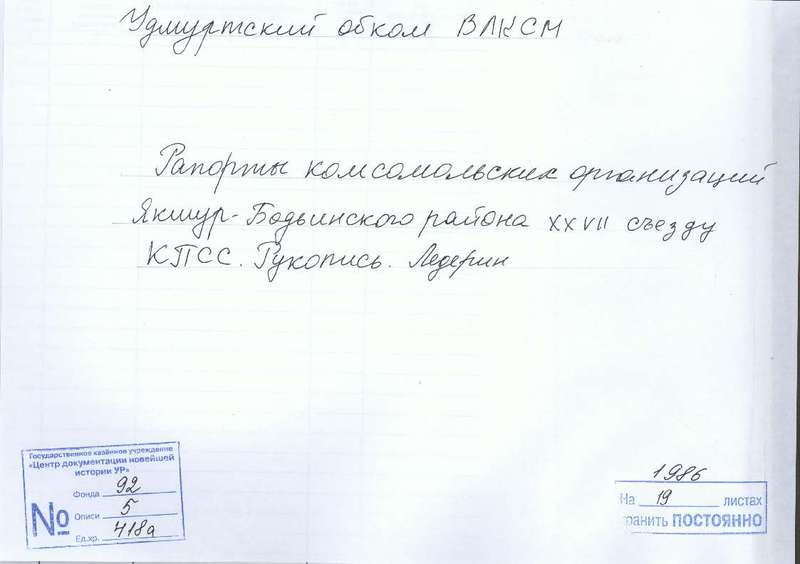 Удмуртский обком ВЛКСМ
Рапорты комсомольских организаций
Якшур-Бодьинского района XXVII съезду
КПСС. Рукопись. Ледерин
Государственное казённое учреждение
«Центр документации новейшей
истории УР»
№
Фонда 92
Описи 5
Ед.хр. 418а
1986
На 19 листах
ранить ПОСТОЯННО